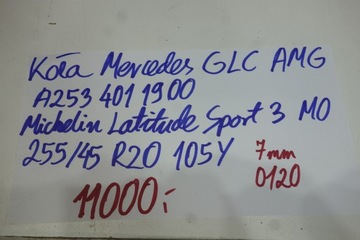 Kоła Mercedes GLC AMG
A253 401 1900
Michelin Latitude Sport 3 MO
255/45 R20 105Y 7mm
0120
11000,-